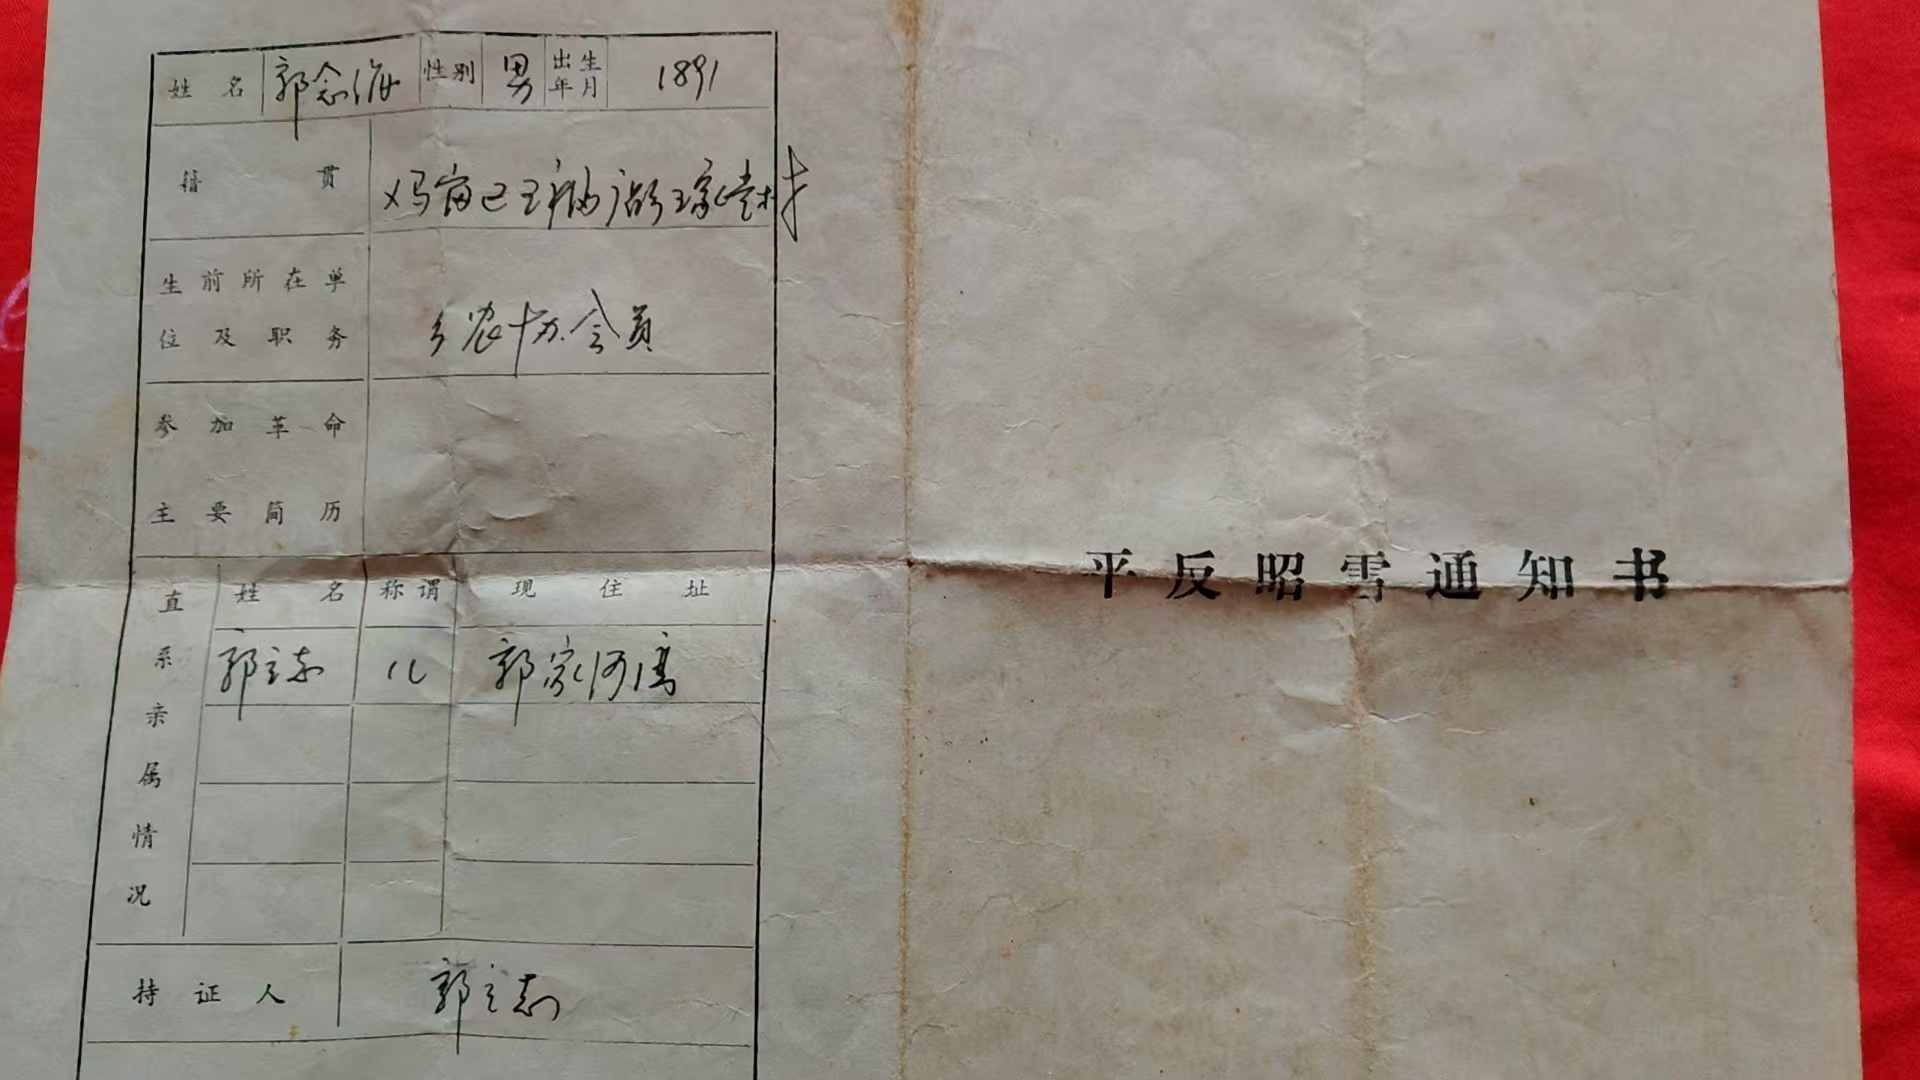 姓名 郭念海 性别 男 出生年月 1891
籍贯
生前所在单位及职务 乡农协会员
参加革命主要简历
直系亲属情况
姓名 称谓 现住址
郭立志 儿 郭家河湾
持证人 郭立志
平反昭雪通知书